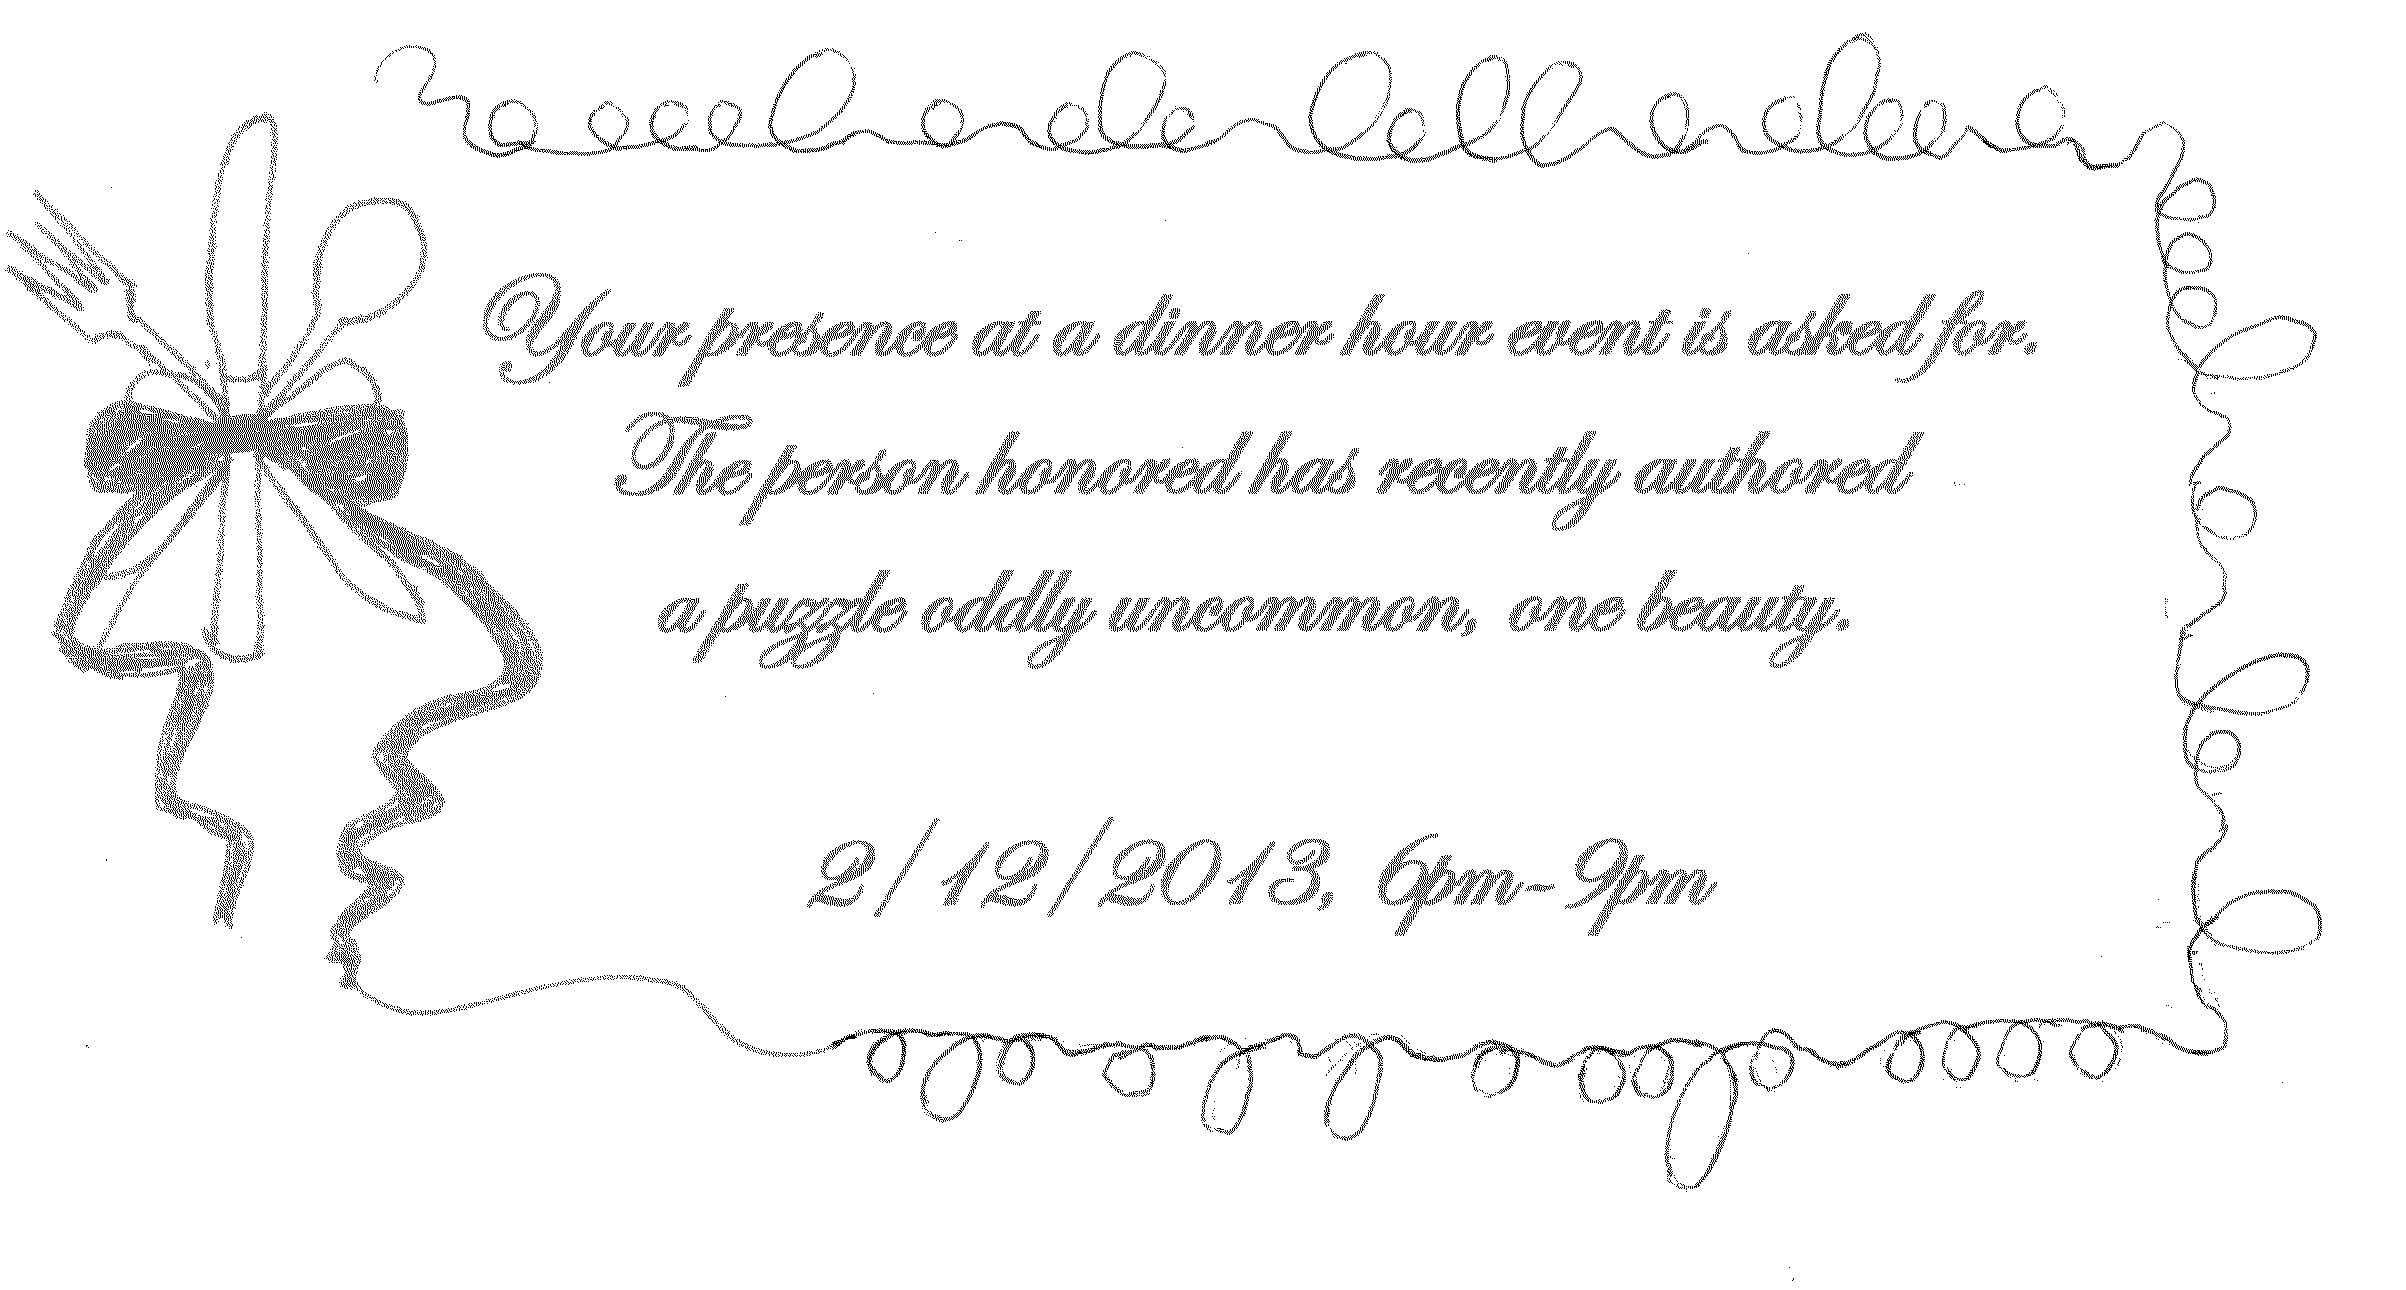 Your presence at a dinner hour event is asked for.
The person honored has recently authored
a puzzle oddly uncommon, one beauty.
2/12/2013, 6pm-9pm